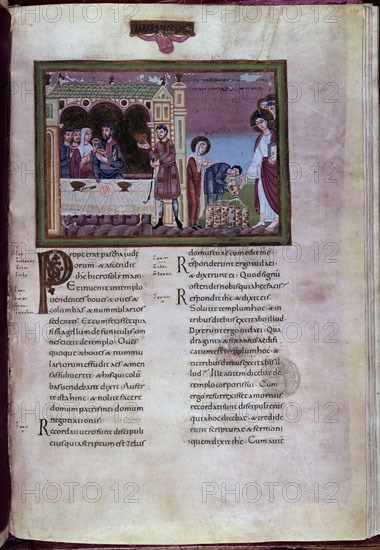 Prope erat pascha iude
orum & ascendit
ihs hierosolymam
Et inuenit in templo
uendentes boues & oues &
columbas & nummularios
sedentes. Et cum fecisset qua
si flagellum de funiculis om
nes eiecit de templo. Oues
quoque & boues & nummu
lariorum effudit aes & men
sas subuertit. & his qui colum
bas uendebant dixit. Auferte
ista hinc. & nolite facere
domum patris mei domum
negotiationis.
Recordati uero sunt discipuli
eius quia scriptum est. Zelus
domus tuae comedit me
Responderunt ergo iudaei
& dixerunt ei. Quod signu
ostendis nobis quia haec facis
Respondit ihs & dixit eis
Soluite templum hoc. & in
tribus diebus excitabo illud
Dixerunt ergo iudaei. Qua
draginta & sex annis aedifi
catum est templum hoc. & tu
tribus diebus excitabis il
lud? Ille autem dicebat de
templo corporis sui. Cum
ergo resurrexisset a mortuis
recordati sunt discipuli eius
quia hoc dicebat. & credide
runt scripturae & sermoni
quem dixit ihs. Cum aute
PHOTO 12